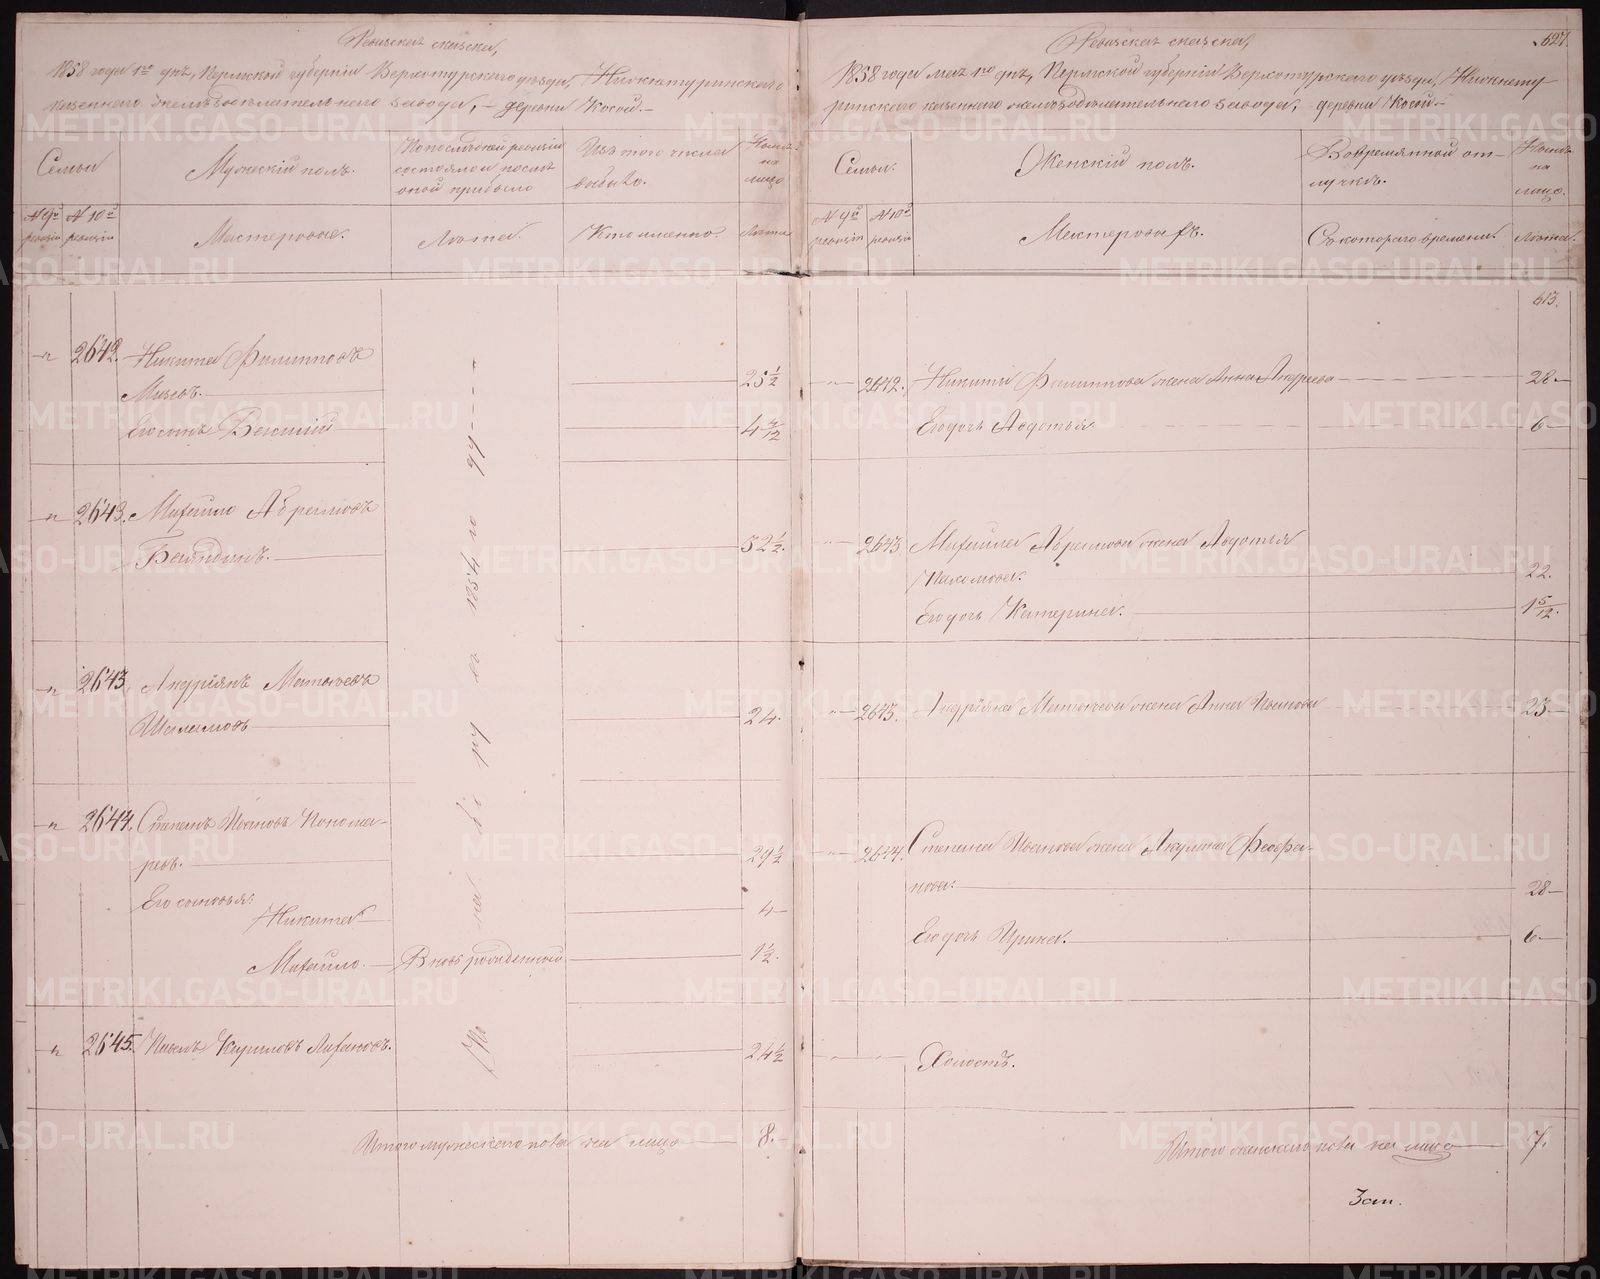 Ревизская сказка,
1858 года 1го дня, Пермской губернии Верхотурского уезда, Нижнетуринского
казеннаго железоделательнаго завода, – деревни Косой. –
Семьи
Мужескій полъ.
По последней ревизіи состояло и после оной прибыло
Изъ того числа выбыло.
Ныне на лицо
№ 9й ревизіи
№ 10й ревизіи
Мастеровые.
Лета.
Кто именно.
Лета
2642. Никита Филипповъ
25 1/2
Его сынъ
4
2643. Михайло Абрамовъ
52 1/2.
2643. Андріянъ Матвеевъ
Шаламовъ
24.
2644. Степанъ Ивановъ Понома-
ревъ.
29 1/2
Его сыновья:
Никита
4–
Михайло. – Вновь рожденный
1 1/2.
2645. Павелъ Кириловъ
24 1/2
Итого мужескаго пола на лицо 8.
627.
Ревизская сказка,
1858 года мая 1го дня, Пермской губерніи Верхотурскаго уезда, Нижнету
ринскаго казеннаго железоделательнаго завода, деревни Косой –
Семьи.
Женскій полъ.
Во временной от-
лучке.
Ныне на лицо.
№ 9й ревизіи
№ 10й ревизіи
Мастеровыхъ.
Съ котораго времени.
Лета.
613.
2642. Никиты Филиппова жена Анна Андреева 28–
Его дочь Авдотья 6–
2643 Михайла Абрамова жена Авдотья
Пахомова. 22.
Его дочь Катерина. 1 5/12.
2643. Андріяна Матвеева жена Анна Иванова 23–
2644. Степана Иванова жена Акулина Феофа-
нова. 28–
Его дочь Ирина. 6–
Холостъ.
Итого женскаго пола на лицо 7.
3 ст.
METRIKI.GASO-URAL.RU